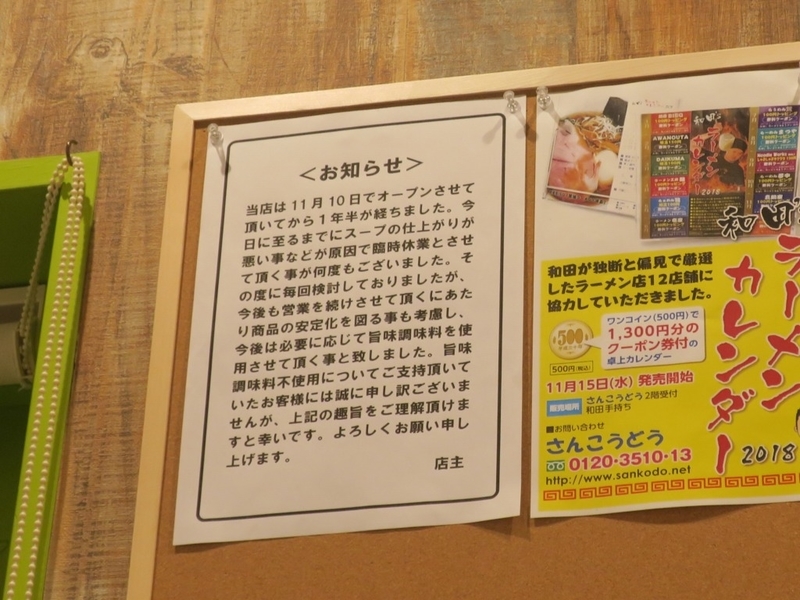 ＜お知らせ＞
当店は11月10日でオープンさせて
頂いてから1年半が経ちました。今
日に至るまでにスープの仕上がりが
悪い事などが原因で臨時休業とさせ
て頂く事が何度もございました。そ
の度に毎回検討しておりましたが、
今後も営業を続けさせて頂くにあた
り商品の安定化を図る事も考慮し、
今後は必要に応じて旨味調味料を使
用させて頂く事と致しました。旨味
調味料不使用についてご支持頂いて
いたお客様には誠に申し訳ございま
せんが、上記の趣旨をご理解頂けま
すと幸いです。よろしくお願い申し
上げます。
店主
和田が独断と偏見で厳選
したラーメン店12店舗に
協力していただきました。
500
500円(税込)
ワンコイン(500円)で
1,300円分の
クーポン券付の
卓上カレンダー
11月15日(水) 発売開始
販売場所
さんこうどう2階受付
和田手持ち
■お問い合わせ
さんこうどう
0120-3510-13
http://www.sankodo.net
ラーメン
カレンダー
2018